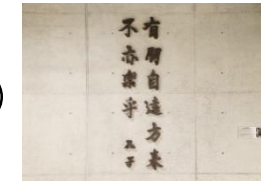 有朋自遠方来
不亦樂乎 孔子